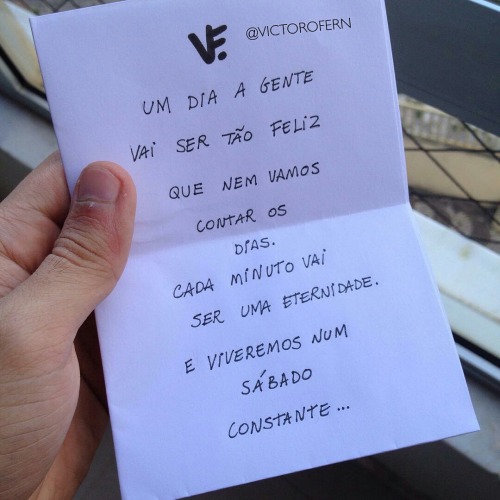 VF.
@VICTOROFERN
UM DIA A GENTE
VAI SER TÃO FELIZ
QUE NEM VAMOS
CONTAR OS
DIAS.
CADA MINUTO VAI
SER UMA ETERNIDADE.
E VIVEREMOS NUM
SÁBADO
CONSTANTE...